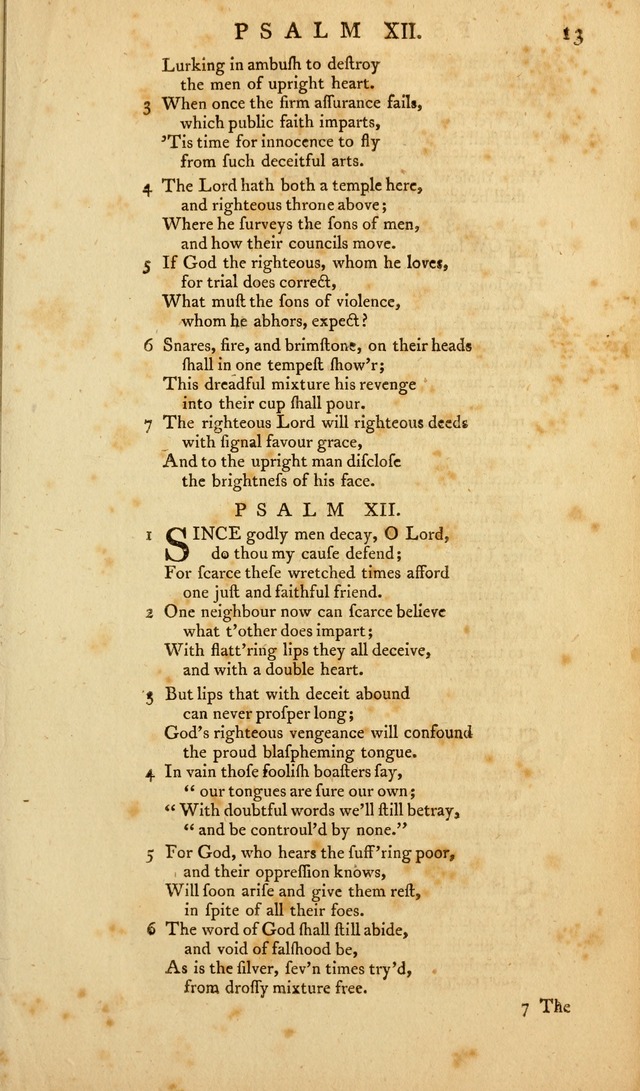 PSALM XII. 13
Lurking in ambuſh to deſtroy
the men of upright heart.
3 When once the firm aſſurance fails,
which public faith imparts,
'Tis time for innocence to fly
from ſuch deceitful arts.
4 The Lord hath both a temple here,
and righteous throne above;
Where he ſurveys the ſons of men,
and how their councils move.
5 If God the righteous, whom he loves,
for trial does correct,
What muſt the ſons of violence,
whom he abhors, expect?
6 Snares, fire, and brimſtone, on their heads
ſhall in one tempeſt ſhow'r;
This dreadful mixture his revenge
into their cup ſhall pour.
7 The righteous Lord will righteous deeds
with ſignal favour grace,
And to the upright man diſcloſe
the brightneſs of his face.
PSALM XII.
1 SINCE godly men decay, O Lord,
do thou my cauſe defend;
For ſcarce theſe wretched times afford
one juſt and faithful friend.
2 One neighbour now can ſcarce believe
what t'other does impart;
With flatt'ring lips they all deceive,
and with a double heart.
3 But lips that with deceit abound
can never proſper long;
God's righteous vengeance will confound
the proud blaſpheming tongue.
4 In vain thoſe fooliſh boaſters ſay,
“ our tongues are ſure our own;
“ With doubtful words we'll ſtill betray,
“ and be controul'd by none.”
5 For God, who hears the ſuff'ring poor,
and their oppreſſion knows,
Will ſoon ariſe and give them reſt,
in ſpite of all their foes.
6 The word of God ſhall ſtill abide,
and void of falſhood be,
As is the ſilver, ſev'n times try'd,
from droſſy mixture free.
7 The